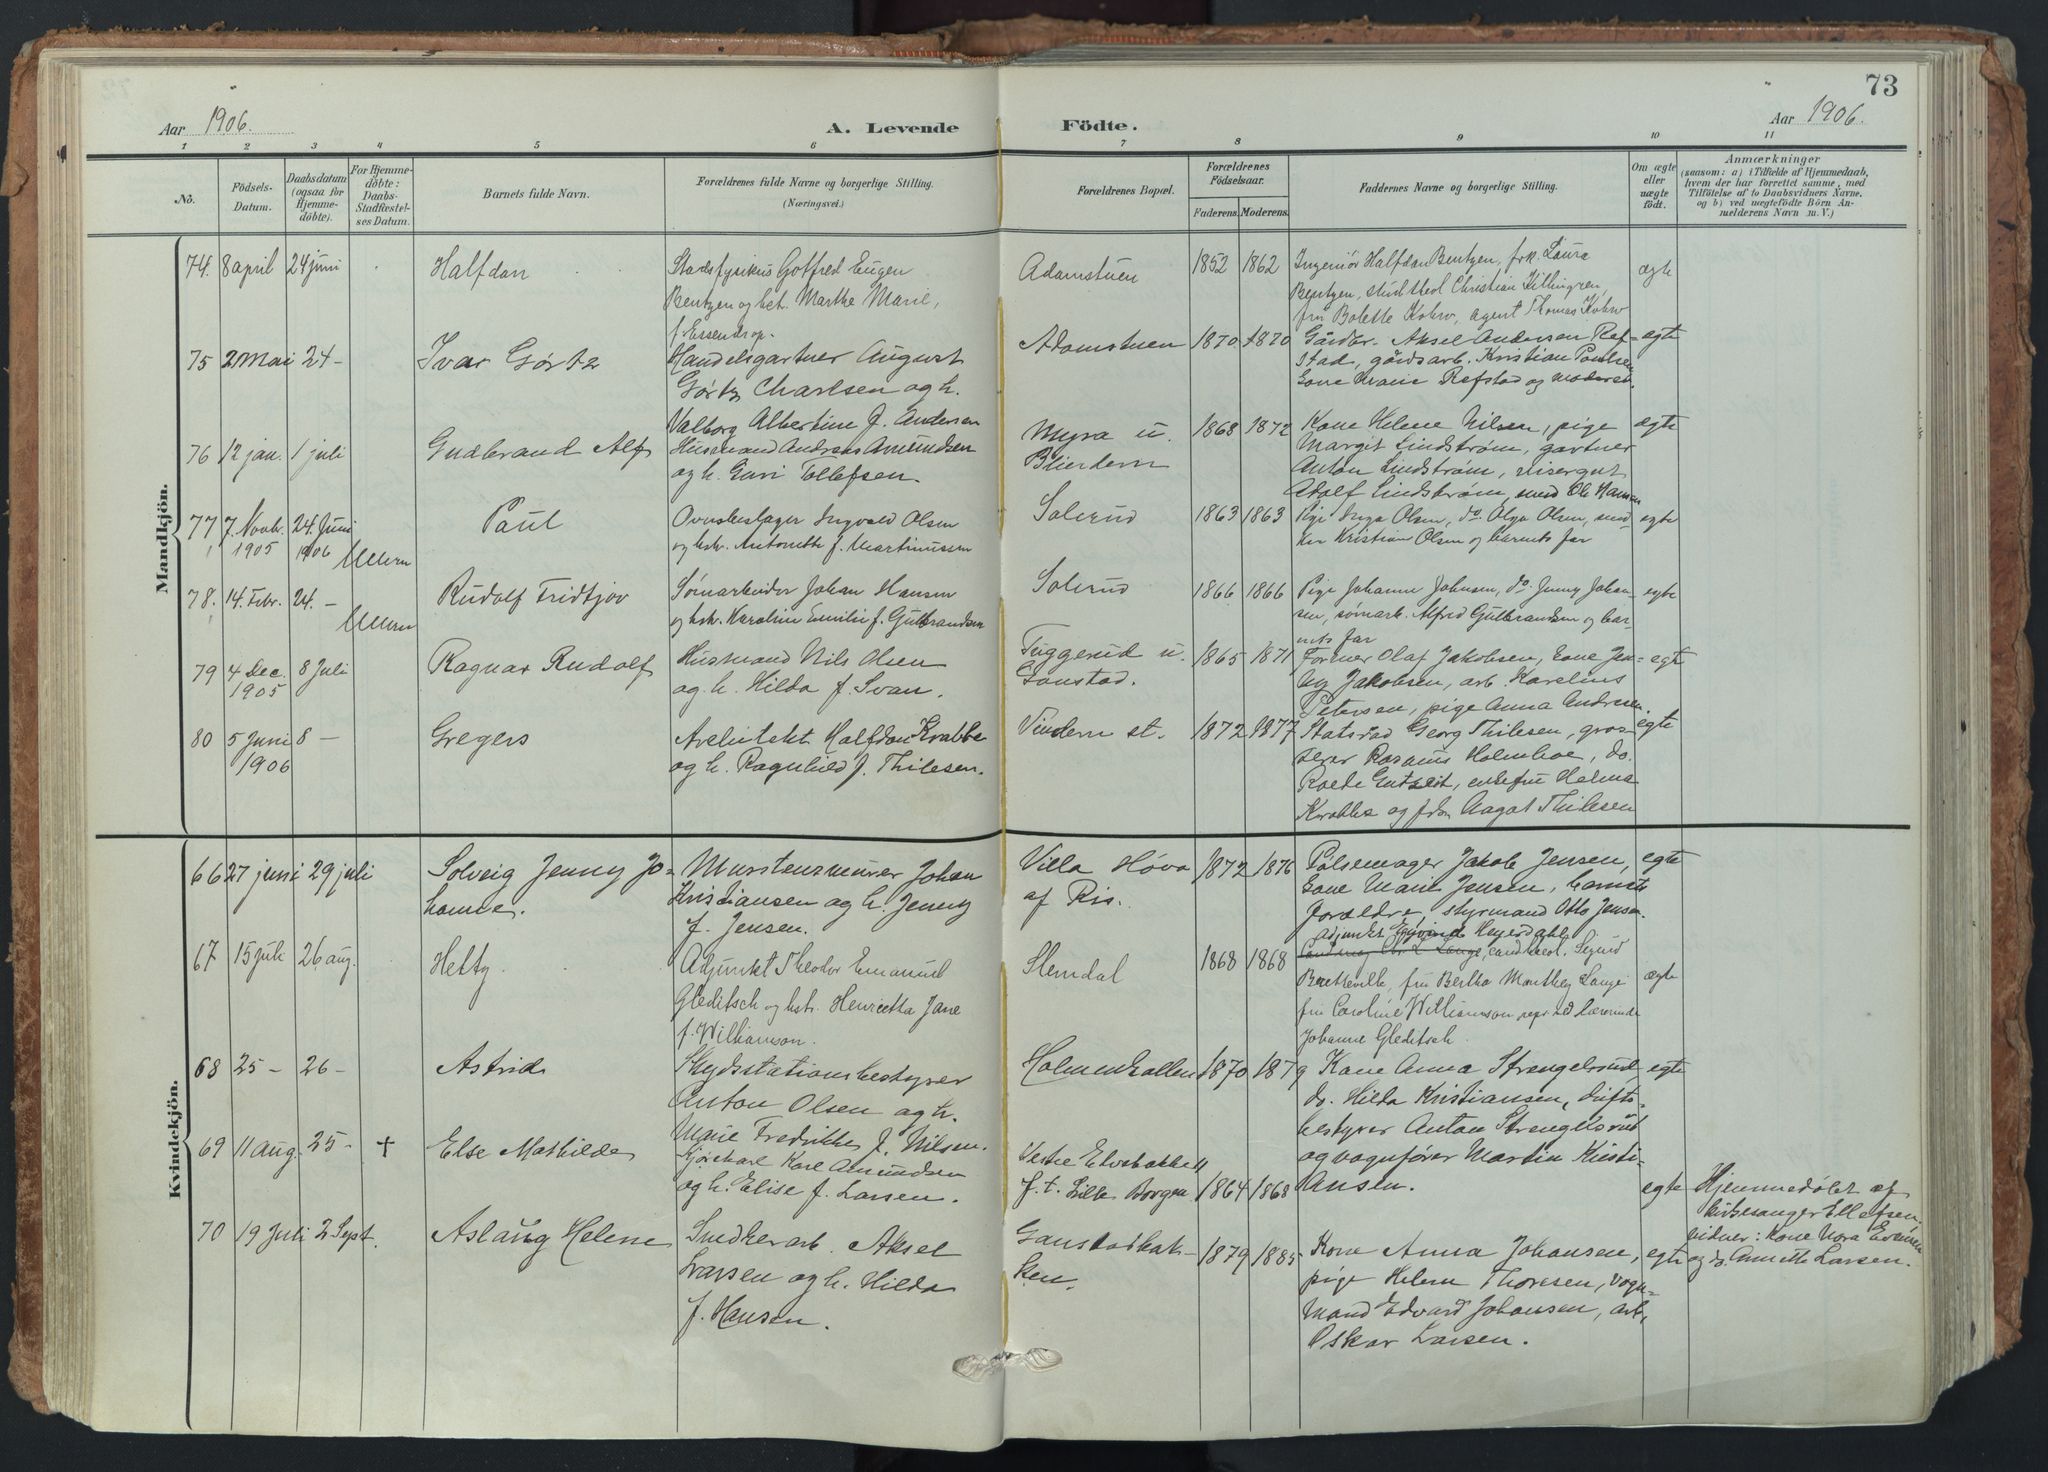 73
Aar 1906.
A. Levende Födte.
Aar 1906.
1 2 3 4 5 6 7 8 9 10 11
No.
Födsels-
Datum.
Daabsdatum
(ogsaa for
Hjemme-
döbte).
For Hjemme-
döbte:
Daabs-
Stadfæstel-
ses Datum.
Barnets fulde Navn.
Forældrenes fulde Navne og borgerlige Stilling.
(Næringsvei.)
Forældrenes Bopæl.
Forældrenes
Födselsaar.
Faderens. Moderens.
Faddernes Navne og borgerlige Stilling.
Om ægte
eller
uægte
født.
Anmærkninger
(saasom: a) i Tilfælde af Hjemmedaab,
hvem der har forrettet samme, med
Tilföielse af to Daabsvidners Navne,
og b) ved uægtefödte Börn An-
melderens Navn m. V.)
Mandkjön.
74. 8 april 24 juni Halfdan
Stadsfysikus Gotfred Eugen
Bentzen og hst. Marthe Marie,
f. Essendrop.
Adamstuen
1852 1862
Ingeniör Halfdan Bentzen, frk. Laura
Bentzen, stud. theol. Christian Killingren,
fru Bolette Kohrv, agent Thomas Kohrv
ægte
75 2 mai 24 - Ivar Görtz
Handelsgartner August
Gørtz Charlsen og h.
Valborg Albertine f. Andersen
Adamstuen
1870 1870
Gårdbr. Aksel Andersen Ref-
stad, gårdsarb. Kristian Poulsen
Kone Marie Refstad og moderen.
egte
76 12 jan. 1 juli Gudbrand Alf
Husmand Andreas Amundsen
og h. Guri Tollefsen.
Myra u.
Blindern
1868 1872
Kone Helene Nilsen, pige
Margit Lindstrøm, gartner
Anton Lindstrøm, visergut
Adolf Lindstrøm, smed Ole Hansen
egte
77 7. Novb. 1905 24. Juni 1906 Ullern Paul
Ovnsbeslager Ingvald Olsen
og hst. Antonette f. Martinussen
Solerud
1863 1863
Pige Inga Olsen, do. Olga Olsen, sned-
ker Kristian Olsen og barnets far
egte
78. 14. Febr. 24. - Ullern Rudolf Fridtjov
Sømarbeider Johan Hansen
og hst. Karoline Emilie f. Gulbrandsen
Solerud
1866 1866
Pige Johanne Johnsen, do. Jenny Johan-
sen, sømarb. Alfred Gulbrandsen og bar-
nets far
egte
79 4 Dec. 1905 8 Juli Ragnar Rudolf
Husmand Nils Olsen
og h. Hilda f. Svan.
Tuggerud u.
Gaustad.
1865 1871
Former Olaf Jakobsen, Kone Jen-
ny Jakobsen, arb. Karelius
Petersen, pige Anna Andresen.
egte
80 5 Juni 1906 8 - Gregers
Arkitekt Halfdan Krabbe
og h. Ragnhild f. Thilesen.
Vindern st.
1872 1877
Statsråd Georg Thilesen, gros-
serer Rasmus Holmboe, do.
Roede Gutzeit, enkefru Helma
Krabbe og frøken Aagot Thilesen
egte
Kvindekjön.
66 27 juni 29 juli Solveig Jenny Jo-
hanne.
Murstensmurer Johan
Kristiansen og h. Jenny
f. Jensen.
Villa Høva
af Ris.
1872 1876
Pølsemager Jakob Jensen,
Kone Marie Jensen, barnets
forældre, styrmand Otto Jensen.
egte
67 15 juli 26 aug. Hetty
Adjunkt Theodor Emanuel
Gleditsch og hst. Henrietta Jane
f. Williamson.
Slemdal
1868 1868
Adjunkt Eyvind Heyerdahl,
cand. theol. Sigurd
fru Bertha Monthey Lange
fru Caroline Williamson repr. ved Lærerinde
Johanne Gleditsch.
ægte
68 25 - 26 - Astrid
Skydsstationsbestyrer
Anton Olsen og h.
Marie Fredrikke f. Nilsen.
Holmenkollen
1870 1879
Kone Anna Strengelsrud,
do. Hilda Kristiansen, drifts-
bestyrer Anton Strengelsrud
og vognfører Martin Kristi-
ansen.
egte
69 11 aug. 25 - + Else Mathilde
Kjørekarl Karl Amundsen
og h. Elise f. Larsen.
Vestre
f. t. Lille Borgen
1864 1868
egte
Hjemmedøbt af
kirkesanger Ellefsen.
vidner: Kone Nora Evensen
og do. Annette Larsen.
70 19 Juli 2 Sept. Aslaug Helene
Snedkerarb. Aksel
Larsen og h. Hilda
f. Hansen.
Gaustadbak-
ken.
1879 1885
Kone Anna Johansen,
pige Helene Thoresen, vogn-
mand Edvard Johansen, arb.
Oskar Larsen.
egte